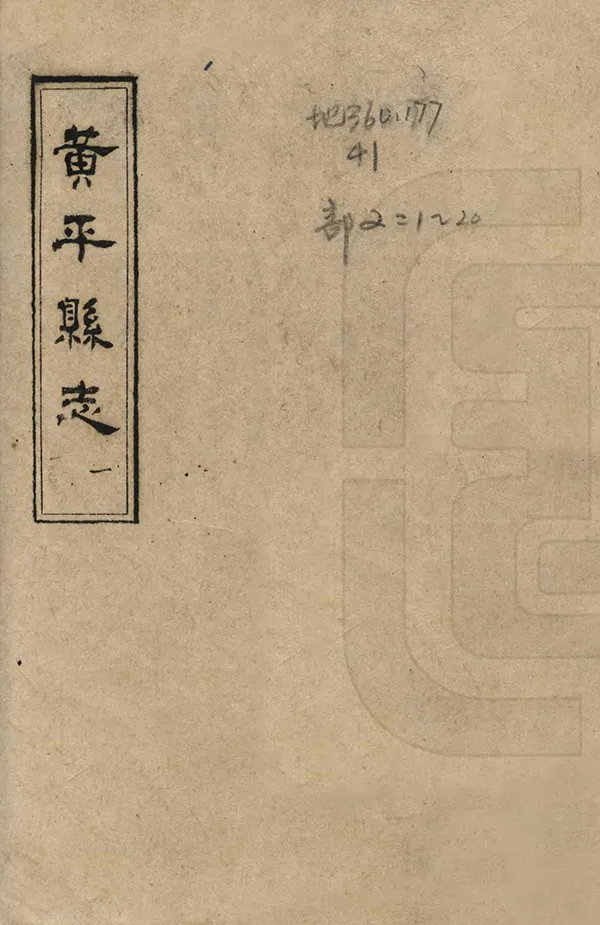 黃平縣志
一
地360.177
41
部2=1~20